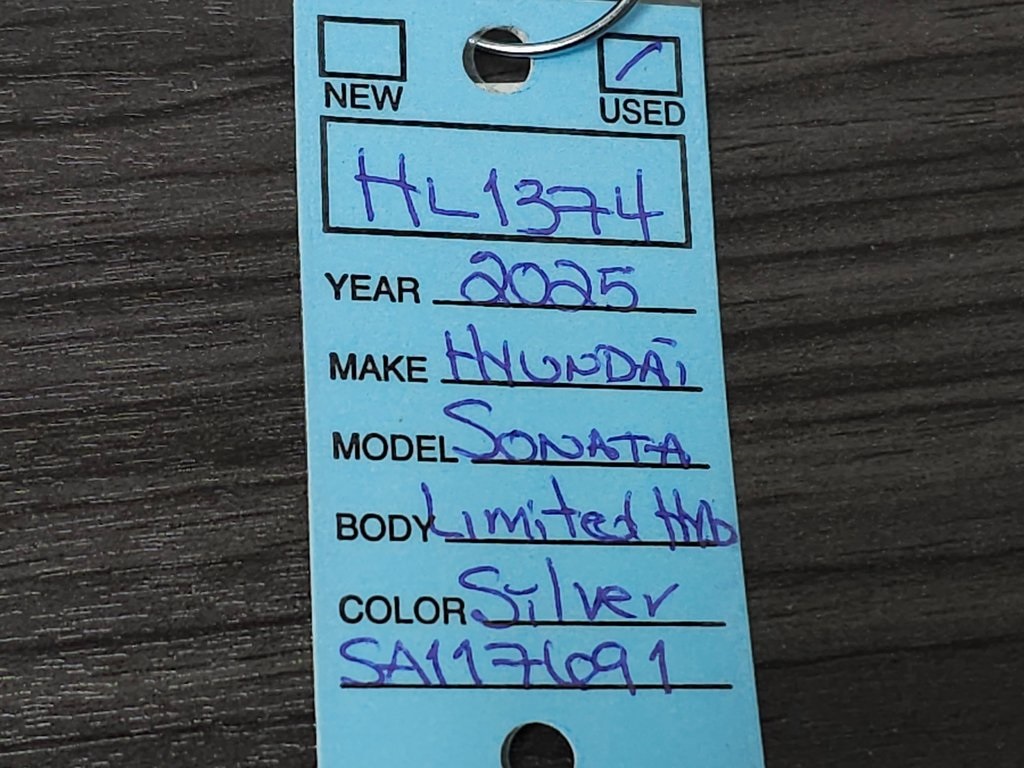 NEW USED
HL1374
YEAR 2025
MAKE HYUNDAi
MODEL SONATA
BODY Limited Hyb
COLOR Silver
SA117691